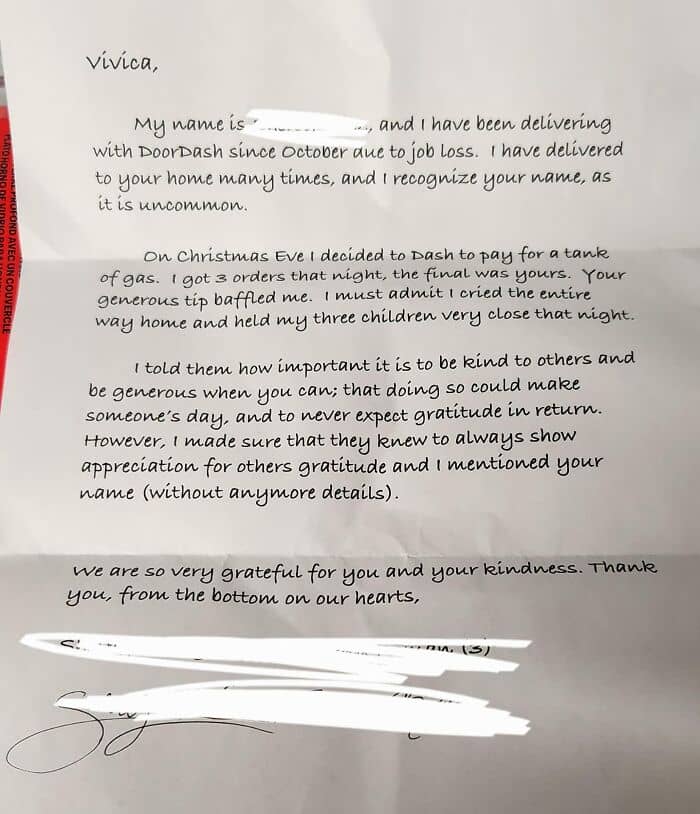 Vivica,
My name is , and I have been delivering
with DoorDash since October due to job loss. I have delivered
to your home many times, and I recognize your name, as
it is uncommon.
On Christmas Eve I decided to Dash to pay for a tank
of gas. I got 3 orders that night, the final was yours. Your
generous tip baffled me. I must admit I cried the entire
way home and held my three children very close that night.
I told them how important it is to be kind to others and
be generous when you can; that doing so could make
someone's day, and to never expect gratitude in return.
However, I made sure that they knew to always show
appreciation for others gratitude and I mentioned your
name (without anymore details).
We are so very grateful for you and your kindness. Thank
you, from the bottom on our hearts,
(3)
PROFOND AVEC UN COUVERCLE